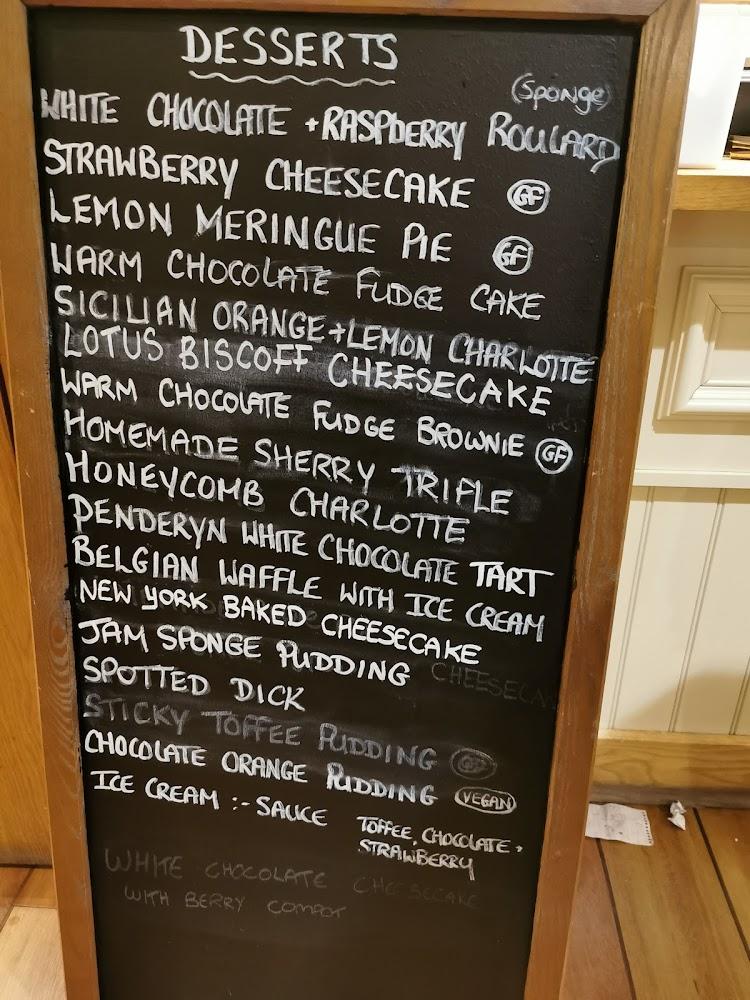 DESSERTS
(Sponge)
WHITE CHOCOLATE + RASPBERRY ROULARD
STRAWBERRY CHEESECAKE GF
LEMON MERINGUE PIE GF
WARM CHOCOLATE FUDGE CAKE
SICILIAN ORANGE + LEMON CHARLOTTE
LOTUS BISCOFF CHEESECAKE
WARM CHOCOLATE FUDGE BROWNIE GF
HOMEMADE SHERRY TRIFLE
HONEYCOMB CHARLOTTE
PENDERYN WHITE CHOCOLATE TART
BELGIAN WAFFLE WITH ICE CREAM
NEW YORK BAKED CHEESECAKE
JAM SPONGE PUDDING
SPOTTED DICK
STICKY TOFFEE PUDDING GF
CHOCOLATE ORANGE PUDDING VEGAN
ICE CREAM :- SAUCE TOFFEE, CHOCOLATE +
STRAWBERRY
WHITE CHOCOLATE CHEESECAKE
WITH BERRY COMPOT